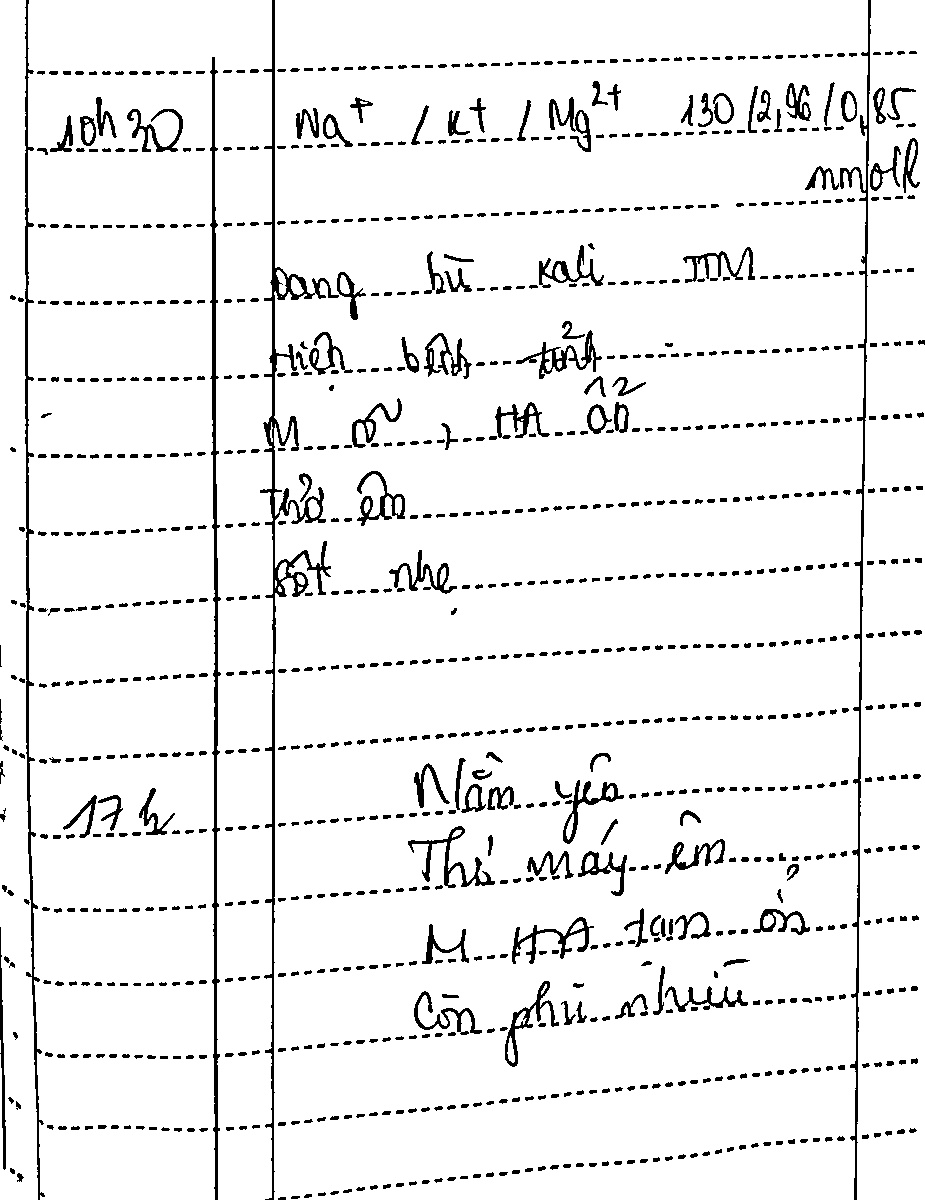 10h30 Na⁺ / K⁺ / Mg²⁺ 130/2,96/0,85
mmol/l
Đang bù kali TTM
Hiện bệnh tỉnh
M rõ, HA ổn
Thở êm
sốt nhẹ
17h Nằm yên
Thở máy êm
M HA tạm ổn
Còn phù nhiều